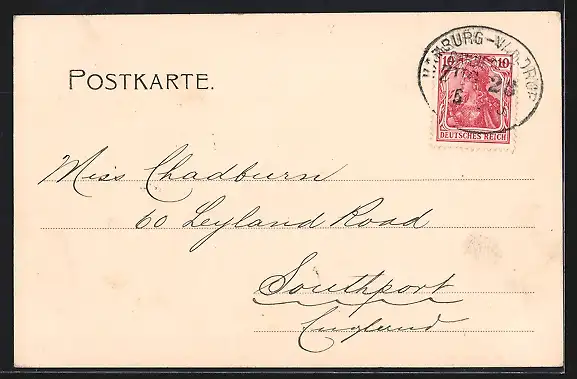 POSTKARTE.
10 10
DEUTSCHES REICH
Miss Chadburn
60 Leyland Road
Southport
England